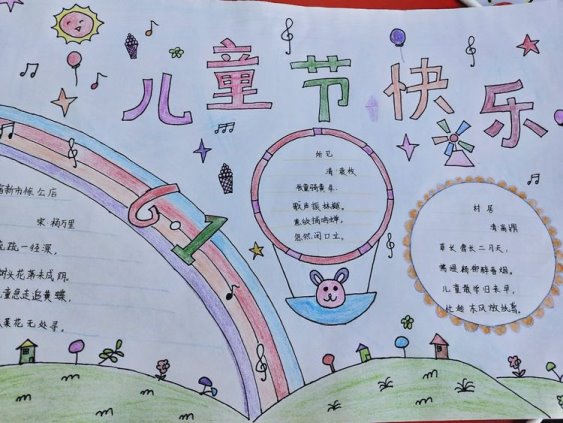 儿童节快乐
6·1
新市徐公店
宋·杨万里
疏一径深,
树头花落未成阴。
儿童急走追黄蝶,
菜花无处寻。
所见
清·袁枚
牧童骑黄牛,
歌声振林樾。
意欲捕鸣蝉,
忽然闭口立。
村居
清 高鼎
草长莺飞二月天,
拂堤杨柳醉春烟。
儿童散学归来早,
忙趁东风放纸鸢。